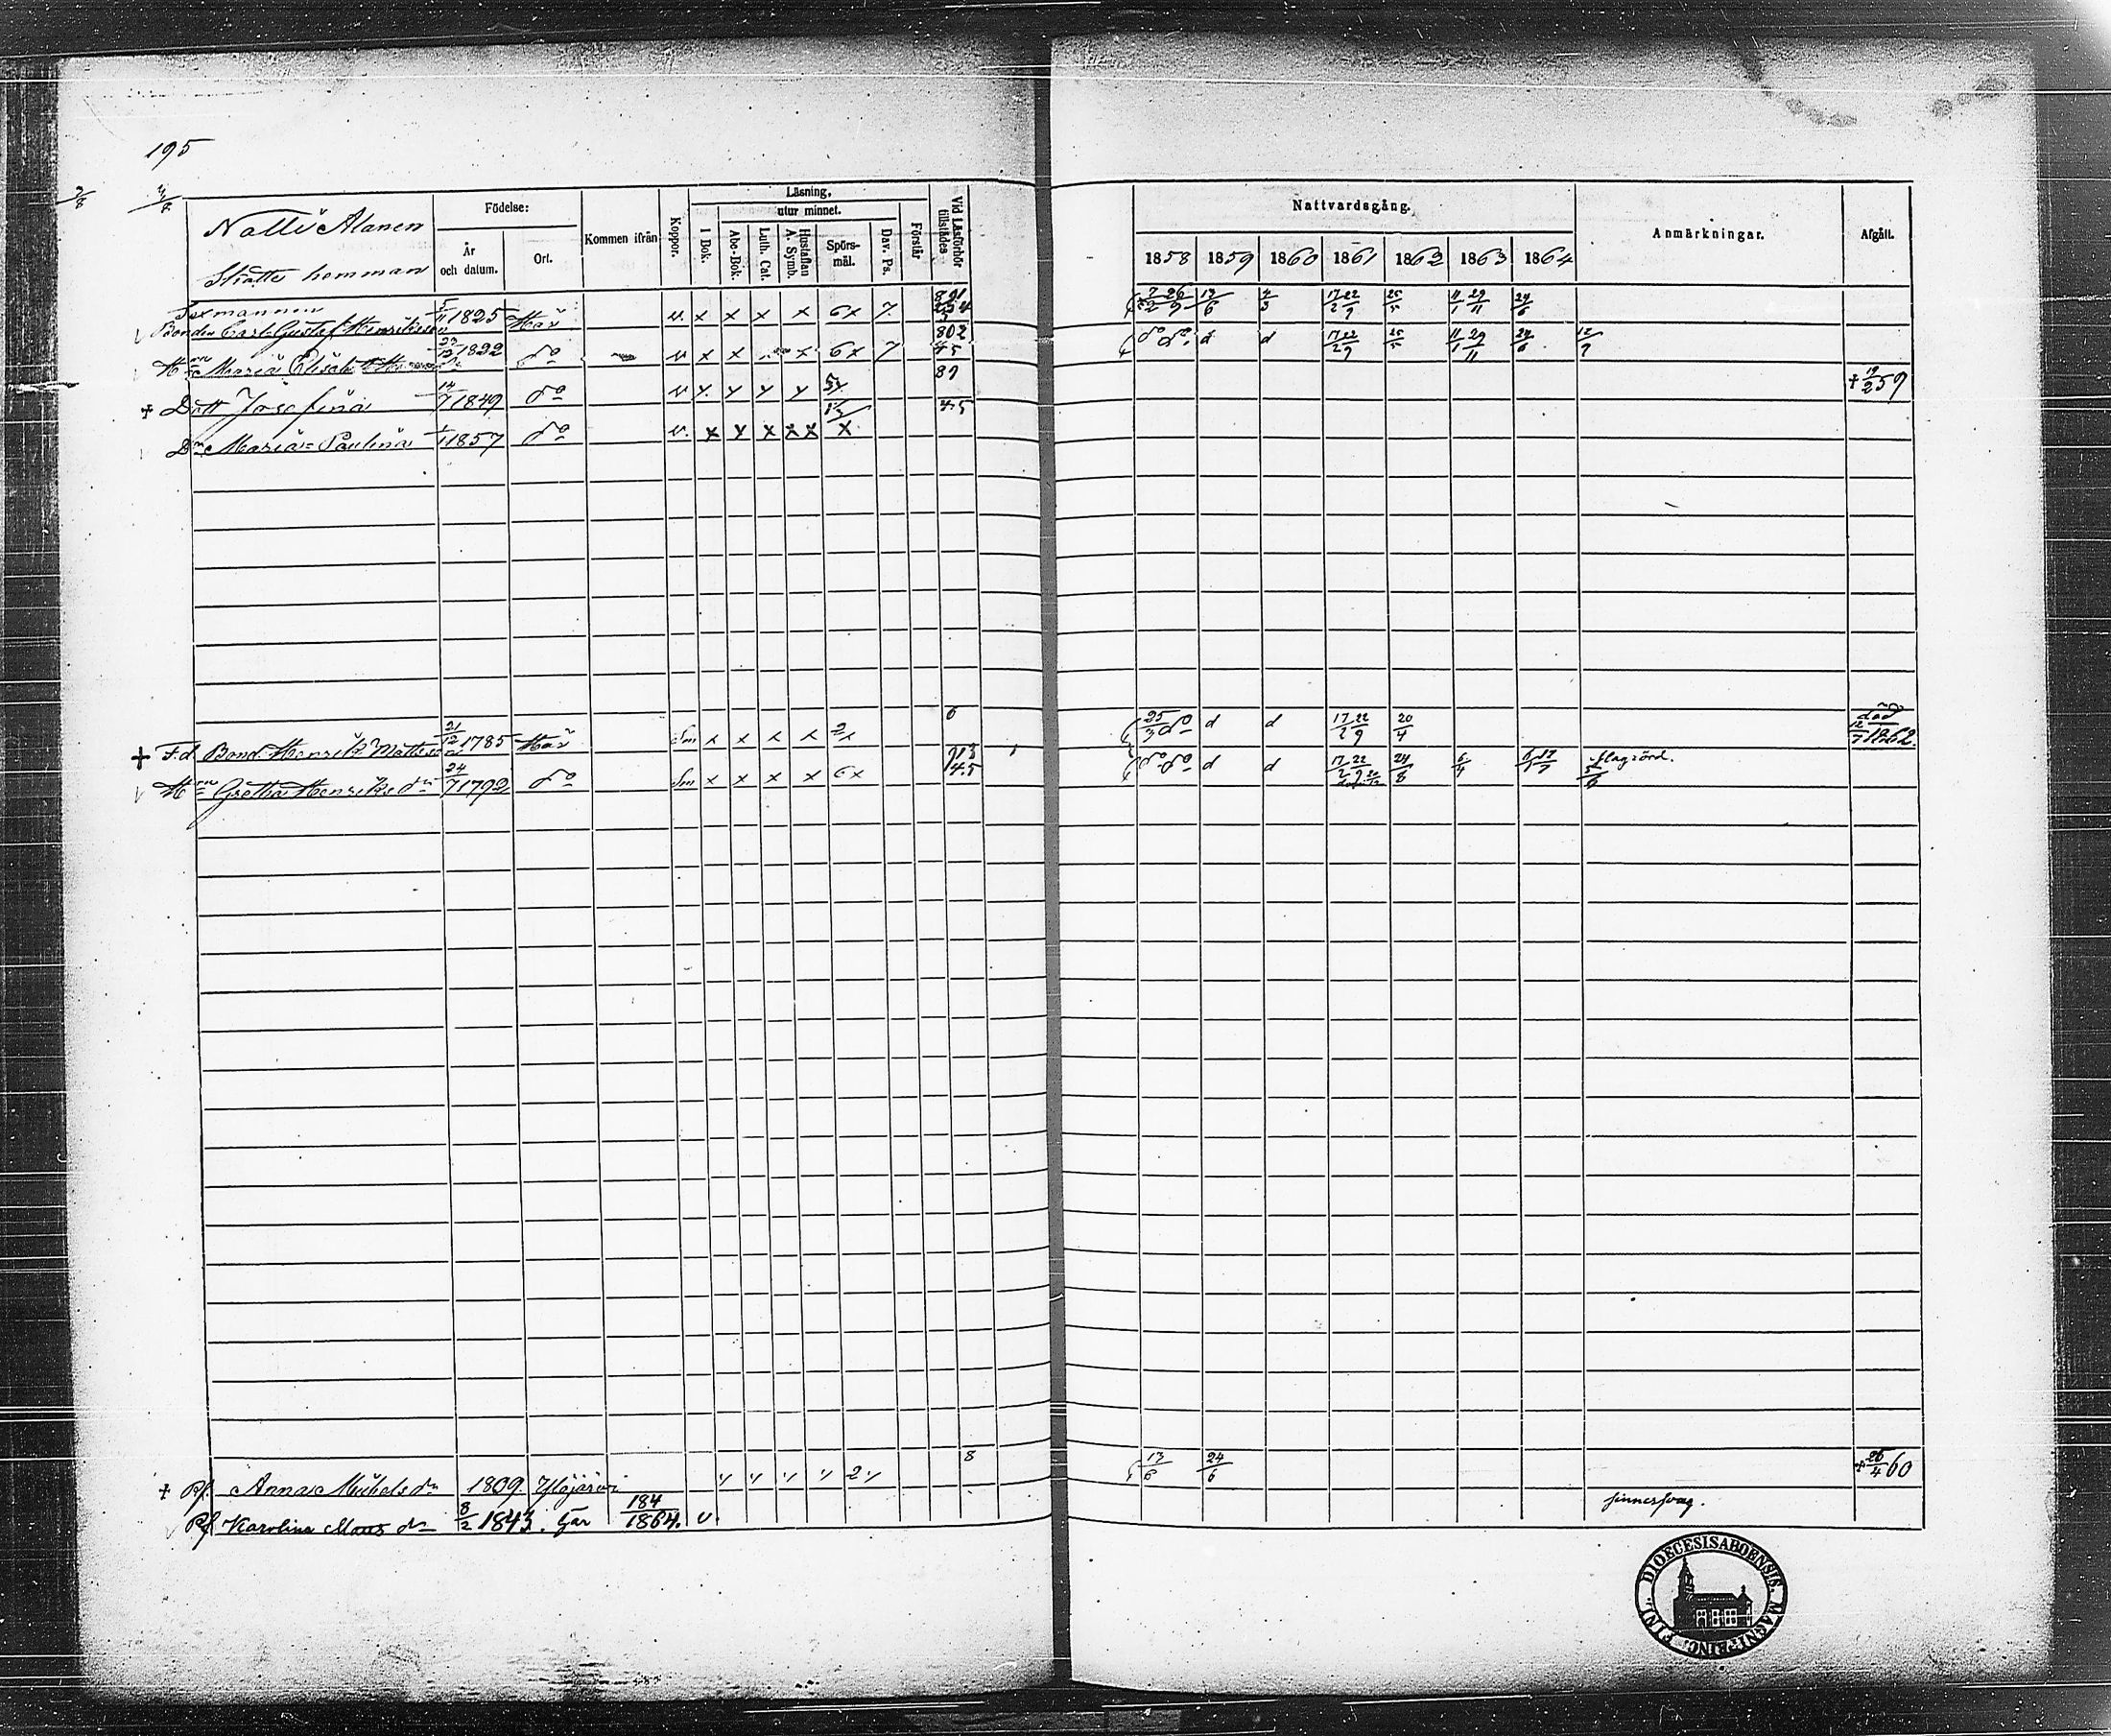 195
Natti Alanen
Skatte hemman
Födelse:
År och datum.
Ort.
Kommen ifrån
Koppor.
Läsning,
utur minnet.
I Bok.
Abc-Bok.
Luth. Cat.
Hustaflan A. Symb.
Spörsmål.
Dav. Ps.
Förstår
Vid Läsförhör tillstädes
Nattvardsgång.
1858 1859 1860 1861 1862 1863 1864
Anmärkningar.
Afgått.
Sexmannen
Bonden Carl Gustaf Henriksson 5/11 1825 Här v. x x x x 6x 7 7/2 26/9 13/6 4/3 17/2 22/9 25/5 11/1 29/11 24/6
Hn Maria Elisab 1822 do v x x x 6x 7 802 45 do do d d 17/2 22/9 25/5 11/1 29/11 24/6 12/9
+ Dott Josefina 14/7 1849 do v 87 45 + 19/2 59
Dr Maria Paulina 1857 do v. x x x x x x
+ F.d. Bond. Henrik Mattsson 21/12 1785 Här Sm x x x x 6 25/3 do d d 17/2 22/9 20/4 död 12/7 1862.
Hn Gretha Henriks dr 24/7 1792 do Sm x x x x 6x 713 45 do do d d 17/2 24/8 6/4 slagrörd.
+ Pf. Anna Michels dr 1809. Ylöjärvi 2 8 13/6 24/6 + 26/4 60
Pf Karolina Mats dr 8/2 1843. här 184/1864. v. sinnessvag.
DIOECESIS ABOENSIS. MAGNI PRINC. FINL.